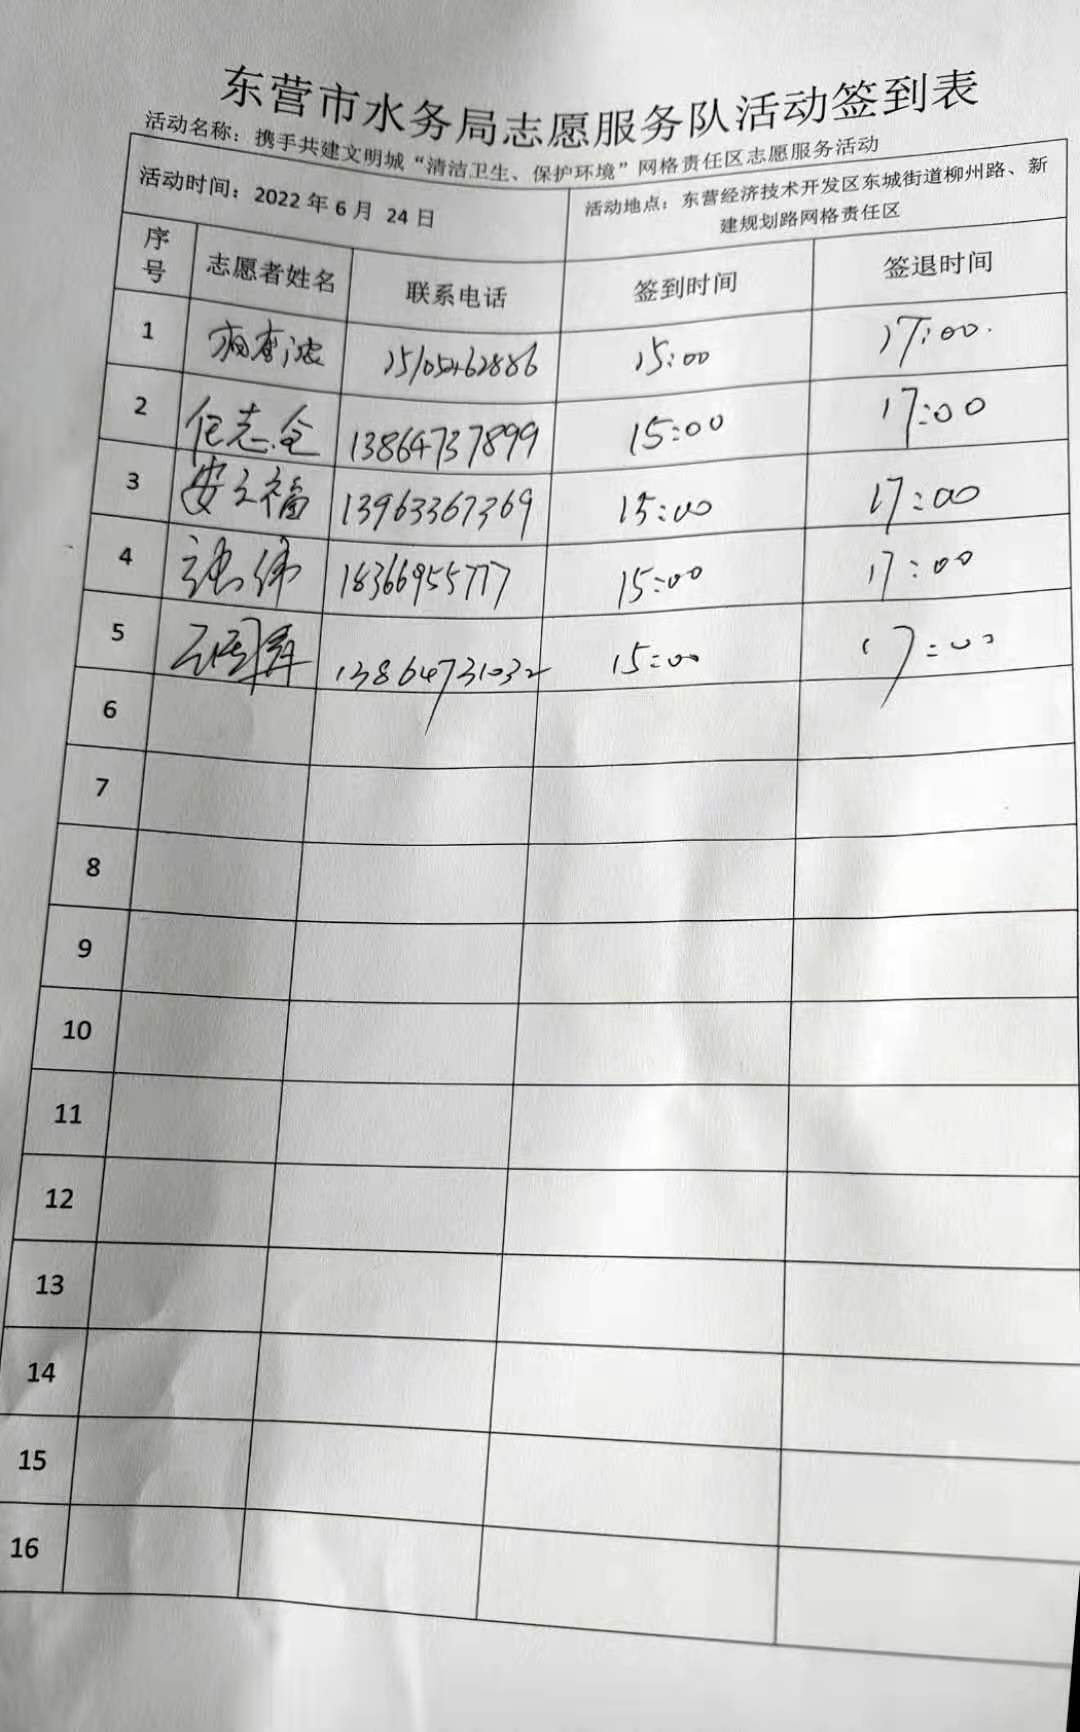 东营市水务局志愿服务队活动签到表
活动名称：携手共建文明城“清洁卫生、保护环境”网格责任区志愿服务活动
活动时间：2022年6月 24日
活动地点：东营经济技术开发区东城街道柳州路、新
建规划路网格责任区
序号 志愿者姓名 联系电话 签到时间 签退时间
1 15:00 17:00
2 任志全 13864737899 15:00 17:00
3 安文福 13963367369 15:00 17:00
4 张伟 18366955777 15:00 17:00
5 13864731032 15:00 17:00
6
7
8
9
10
11
12
13
14
15
16